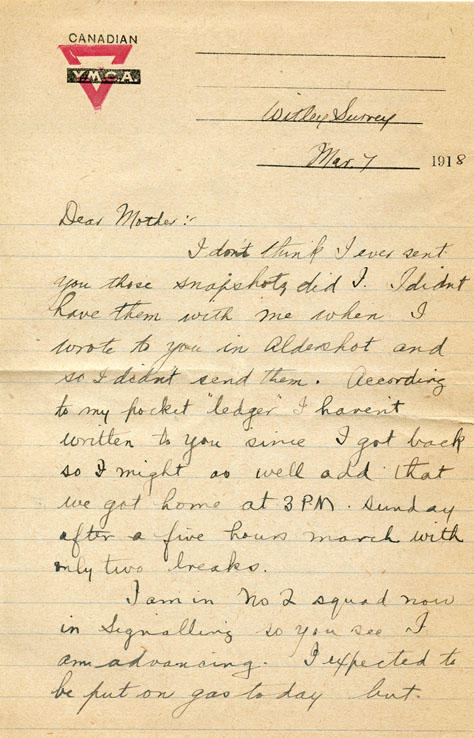 CANADIAN
Y.M.C.A.
Witley Surrey
Mar. 7 1918
Dear Mother:-
I don't think I ever sent
you those snapshots, did I. I didn't
have them with me when I
wrote to you in Aldershot and
so I didn't send them. According
to my pocket "ledger" I haven't
written to you since I got back
so I might as well add that
we got home at 3 PM. Sunday
after a five hours march with
only two breaks.
I am in No 2 squad now
in Signalling so you see I
am advancing. I expected to
be put on gas to day but